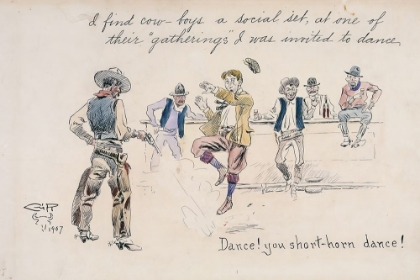 I find cow-boys a social set, at one of
their "gatherings" I was invited to dance
Dance! you short-horn dance!
CMR
1907